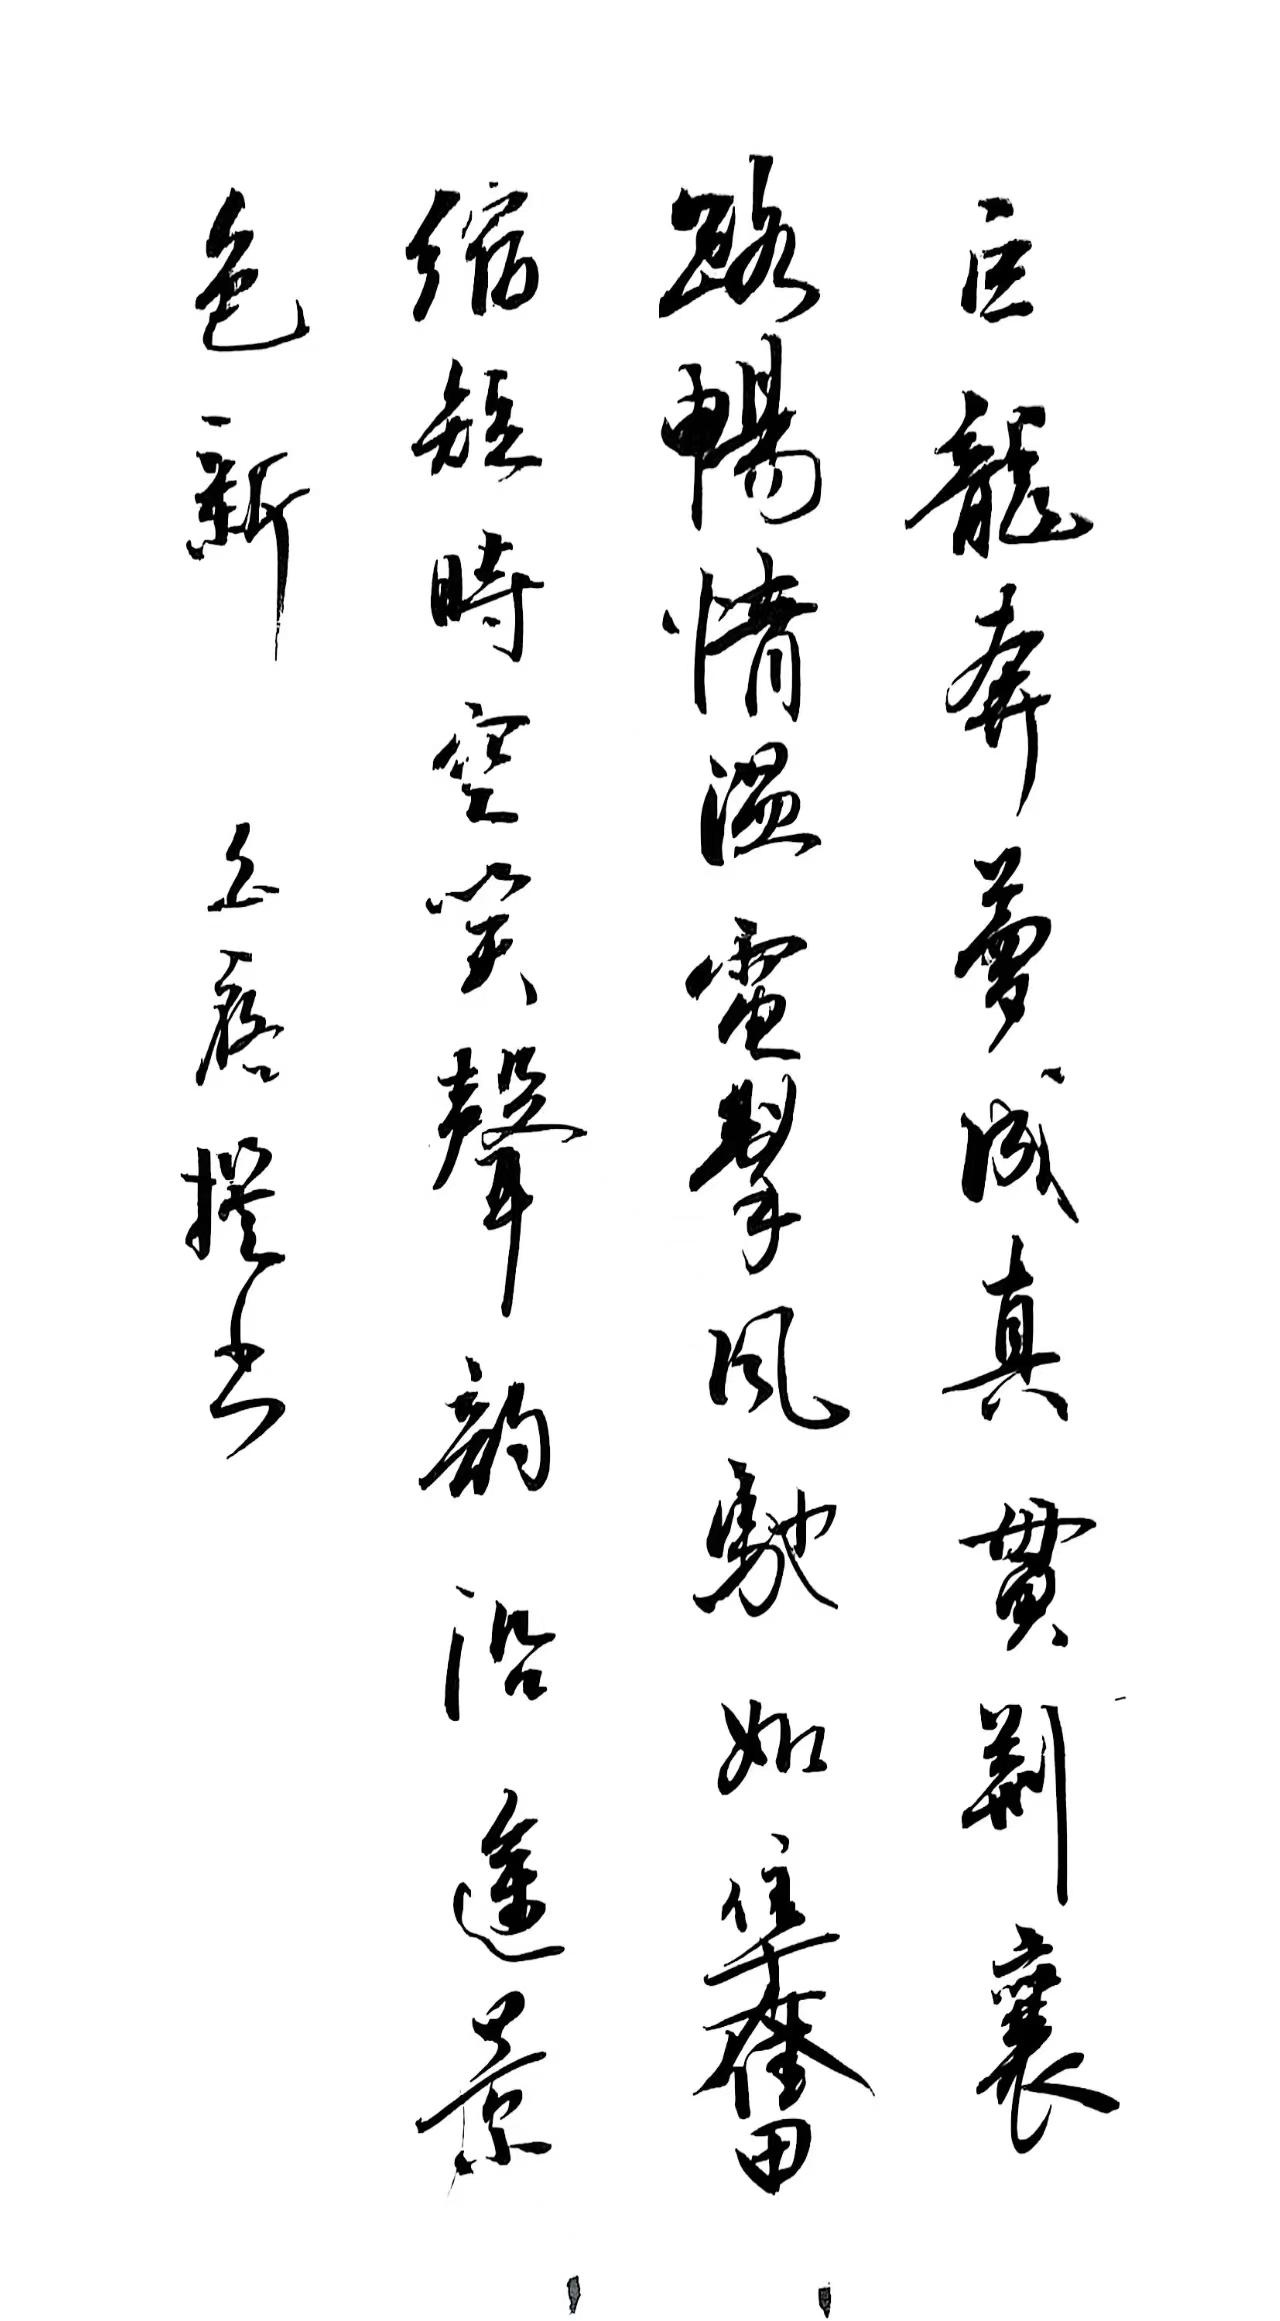 巨龍奔夢成真貫荆襄
路暢情温電掣風馳如隼奮
縮短時空笑聲韵沿途景
色新
撰书